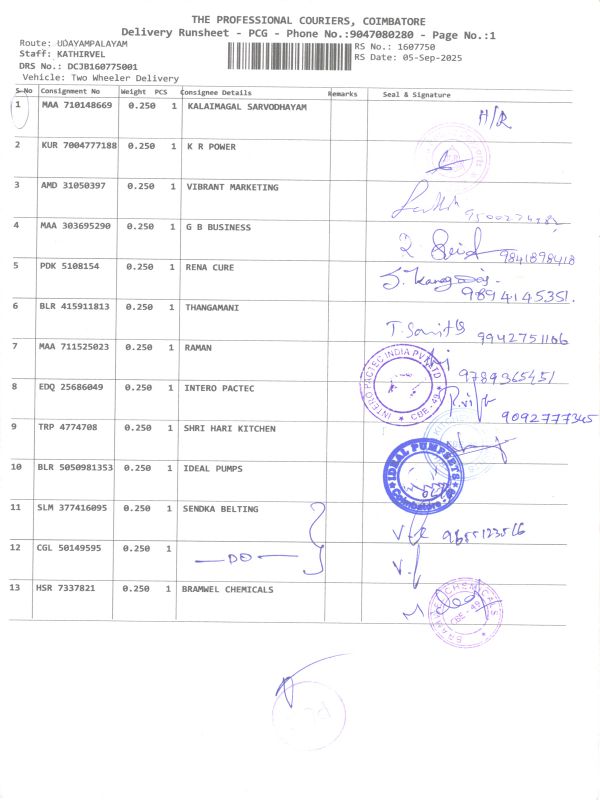 THE PROFESSIONAL COURIERS, COIMBATORE
Delivery Runsheet - PCG - Phone No.:9047080280 - Page No.:1
Route: UDAYAMPALAYAM
RS No.: 1607750
Staff: KATHIRVEL
RS Date: 05-Sep-2025
DRS No.: DCJB160775001
Vehicle: Two Wheeler Delivery
S-No Consignment No Weight PCS Consignee Details Remarks Seal & Signature
1 MAA 710148669 0.250 1 KALAIMAGAL SARVODHAYAM H/R
2 KUR 7004777188 0.250 1 K R POWER
3 AMD 31050397 0.250 1 VIBRANT MARKETING
4 MAA 303695290 0.250 1 G B BUSINESS 9841898418
5 PDK 5108154 0.250 1 RENA CURE 9894145351.
6 BLR 415911813 0.250 1 THANGAMANI 9942751106
7 MAA 711525023 0.250 1 RAMAN 9789365451
8 EDQ 25686049 0.250 1 INTERO PACTEC INTERO PACTEC INDIA PVT LTD CBE-49 9092777345
9 TRP 4774708 0.250 1 SHRI HARI KITCHEN
10 BLR 5050981353 0.250 1 IDEAL PUMPS IDEAL PUMPSETS Coimbatore
11 SLM 377416095 0.250 1 SENDKA BELTING
12 CGL 50149595 0.250 1 DO
13 HSR 7337821 0.250 1 BRAMWEL CHEMICALS CBE-49